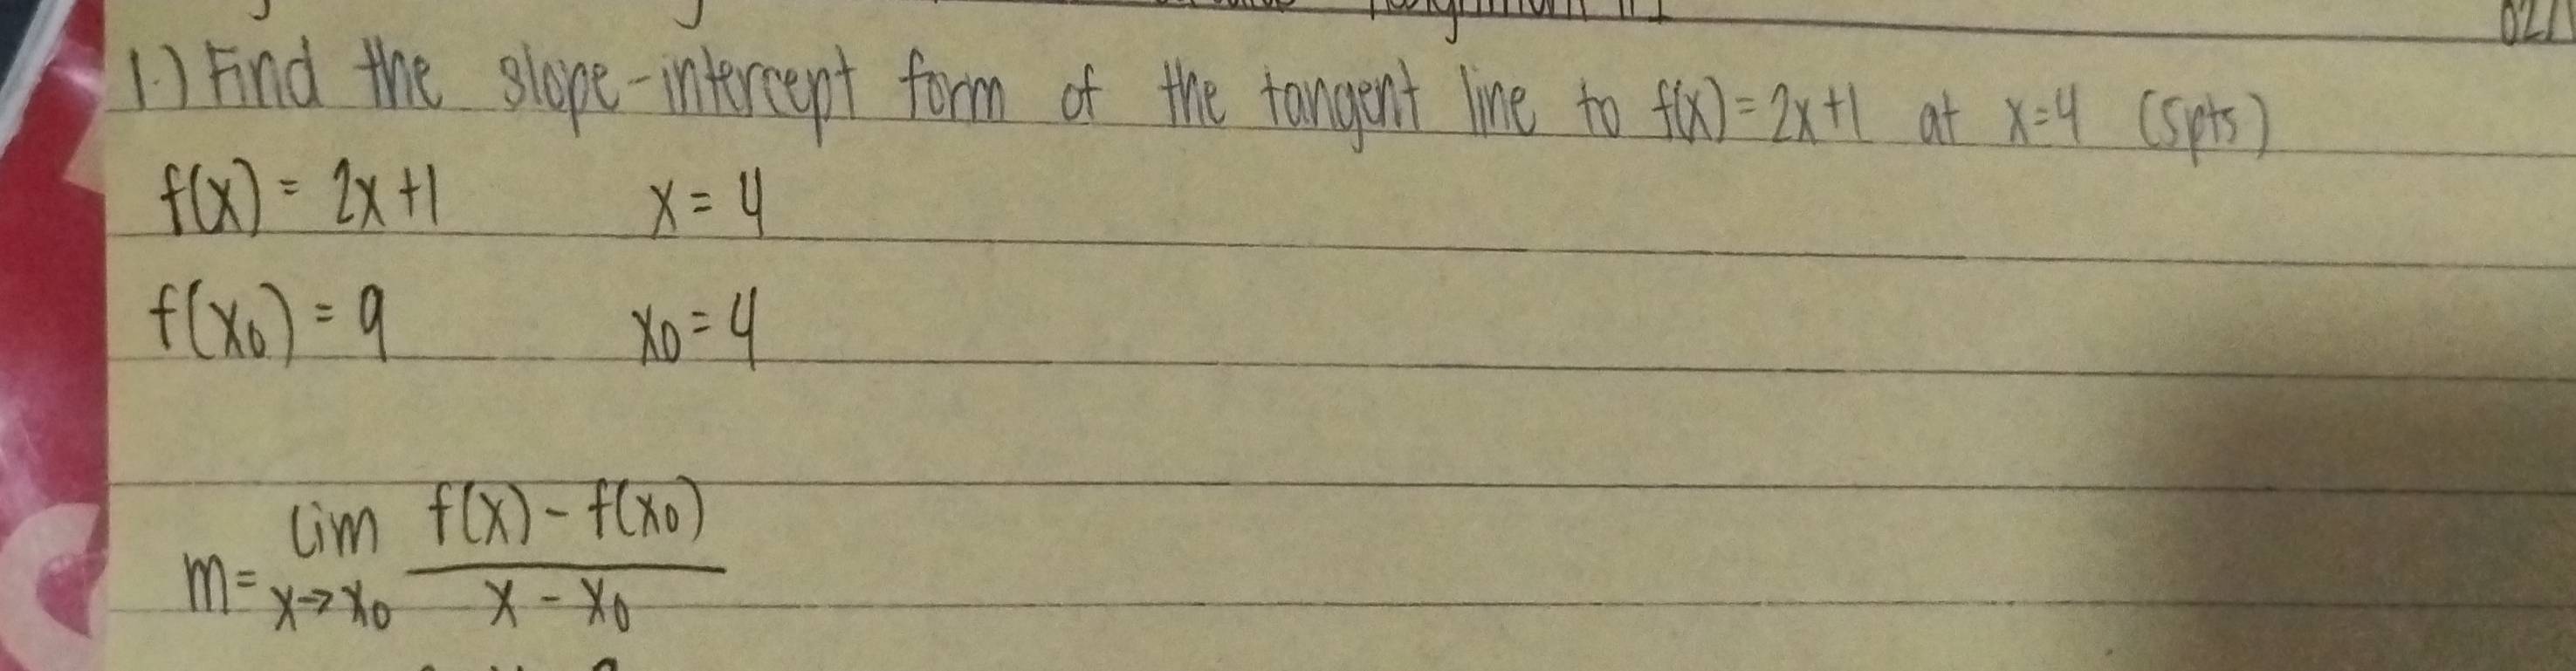 1.) Find the slope-intercept form of the tangent line to f(x) = 2x+1 at x=4 (5pts)
f(x) = 2x+1 x = 4
f(x₀) = 9 x₀ = 4
m = lim x→x₀ f(x) - f(x₀) / x - x₀